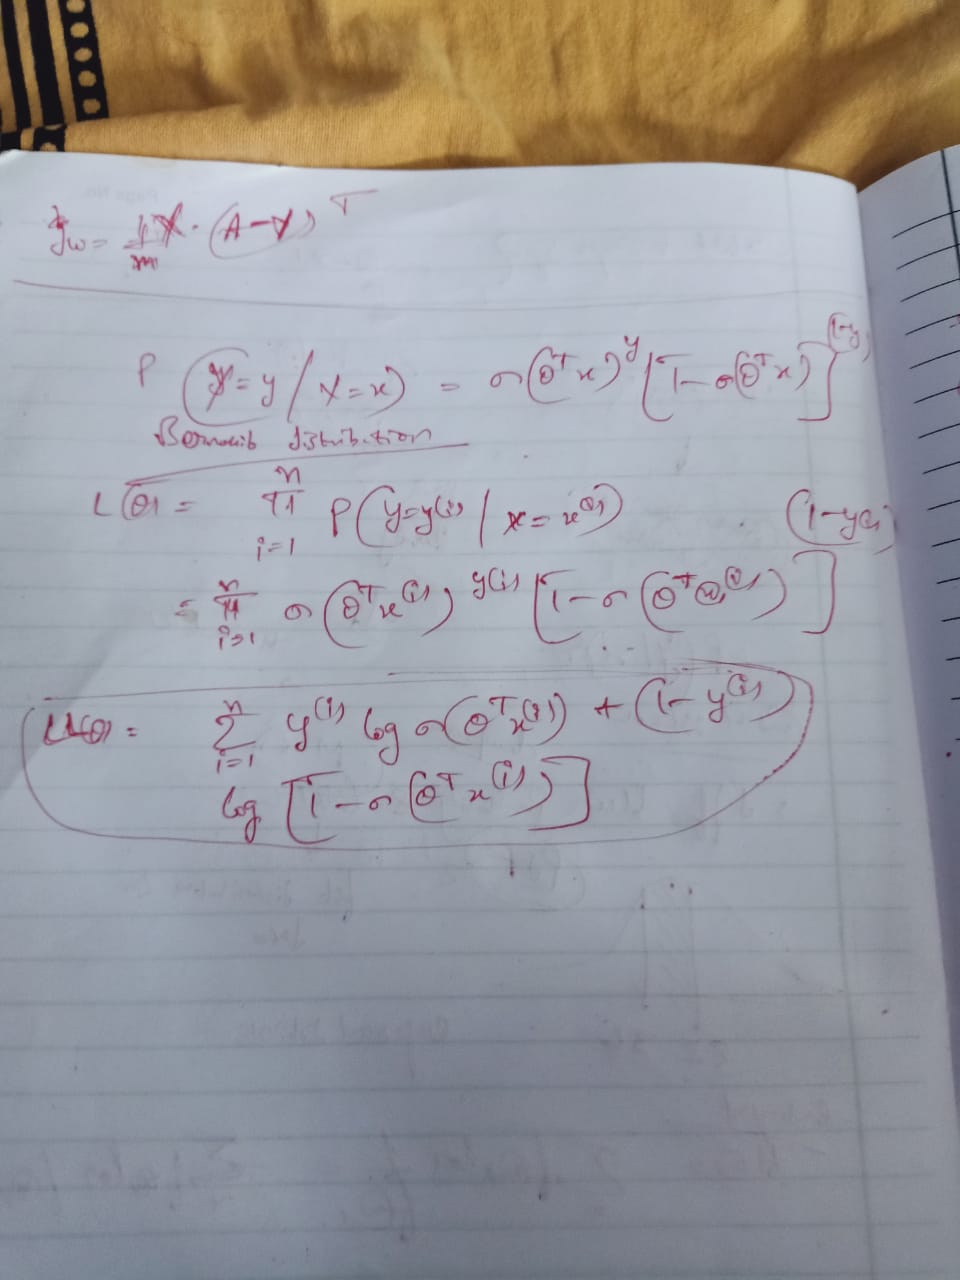 Jw = 1/m X · (A - Y)ᵀ
P (Y = y / X = x) = σ(θᵀx)ʸ [1 - σ(θᵀx)]⁽¹⁻ʸ⁾
distribution
L(θ) = ∏ᵢ₌₁ⁿ P(y = y⁽ⁱ⁾ | x = x⁽ⁱ⁾)
= ∏ᵢ₌₁ⁿ σ(θᵀx⁽ⁱ⁾)^y⁽ⁱ⁾ [1 - σ(θᵀx⁽ⁱ⁾)]^(1 - y⁽ⁱ⁾)
LL(θ) = ∑ᵢ₌₁ⁿ y⁽ⁱ⁾ log σ(θᵀx⁽ⁱ⁾) + (1 - y⁽ⁱ⁾)
log [1 - σ(θᵀx⁽ⁱ⁾)]